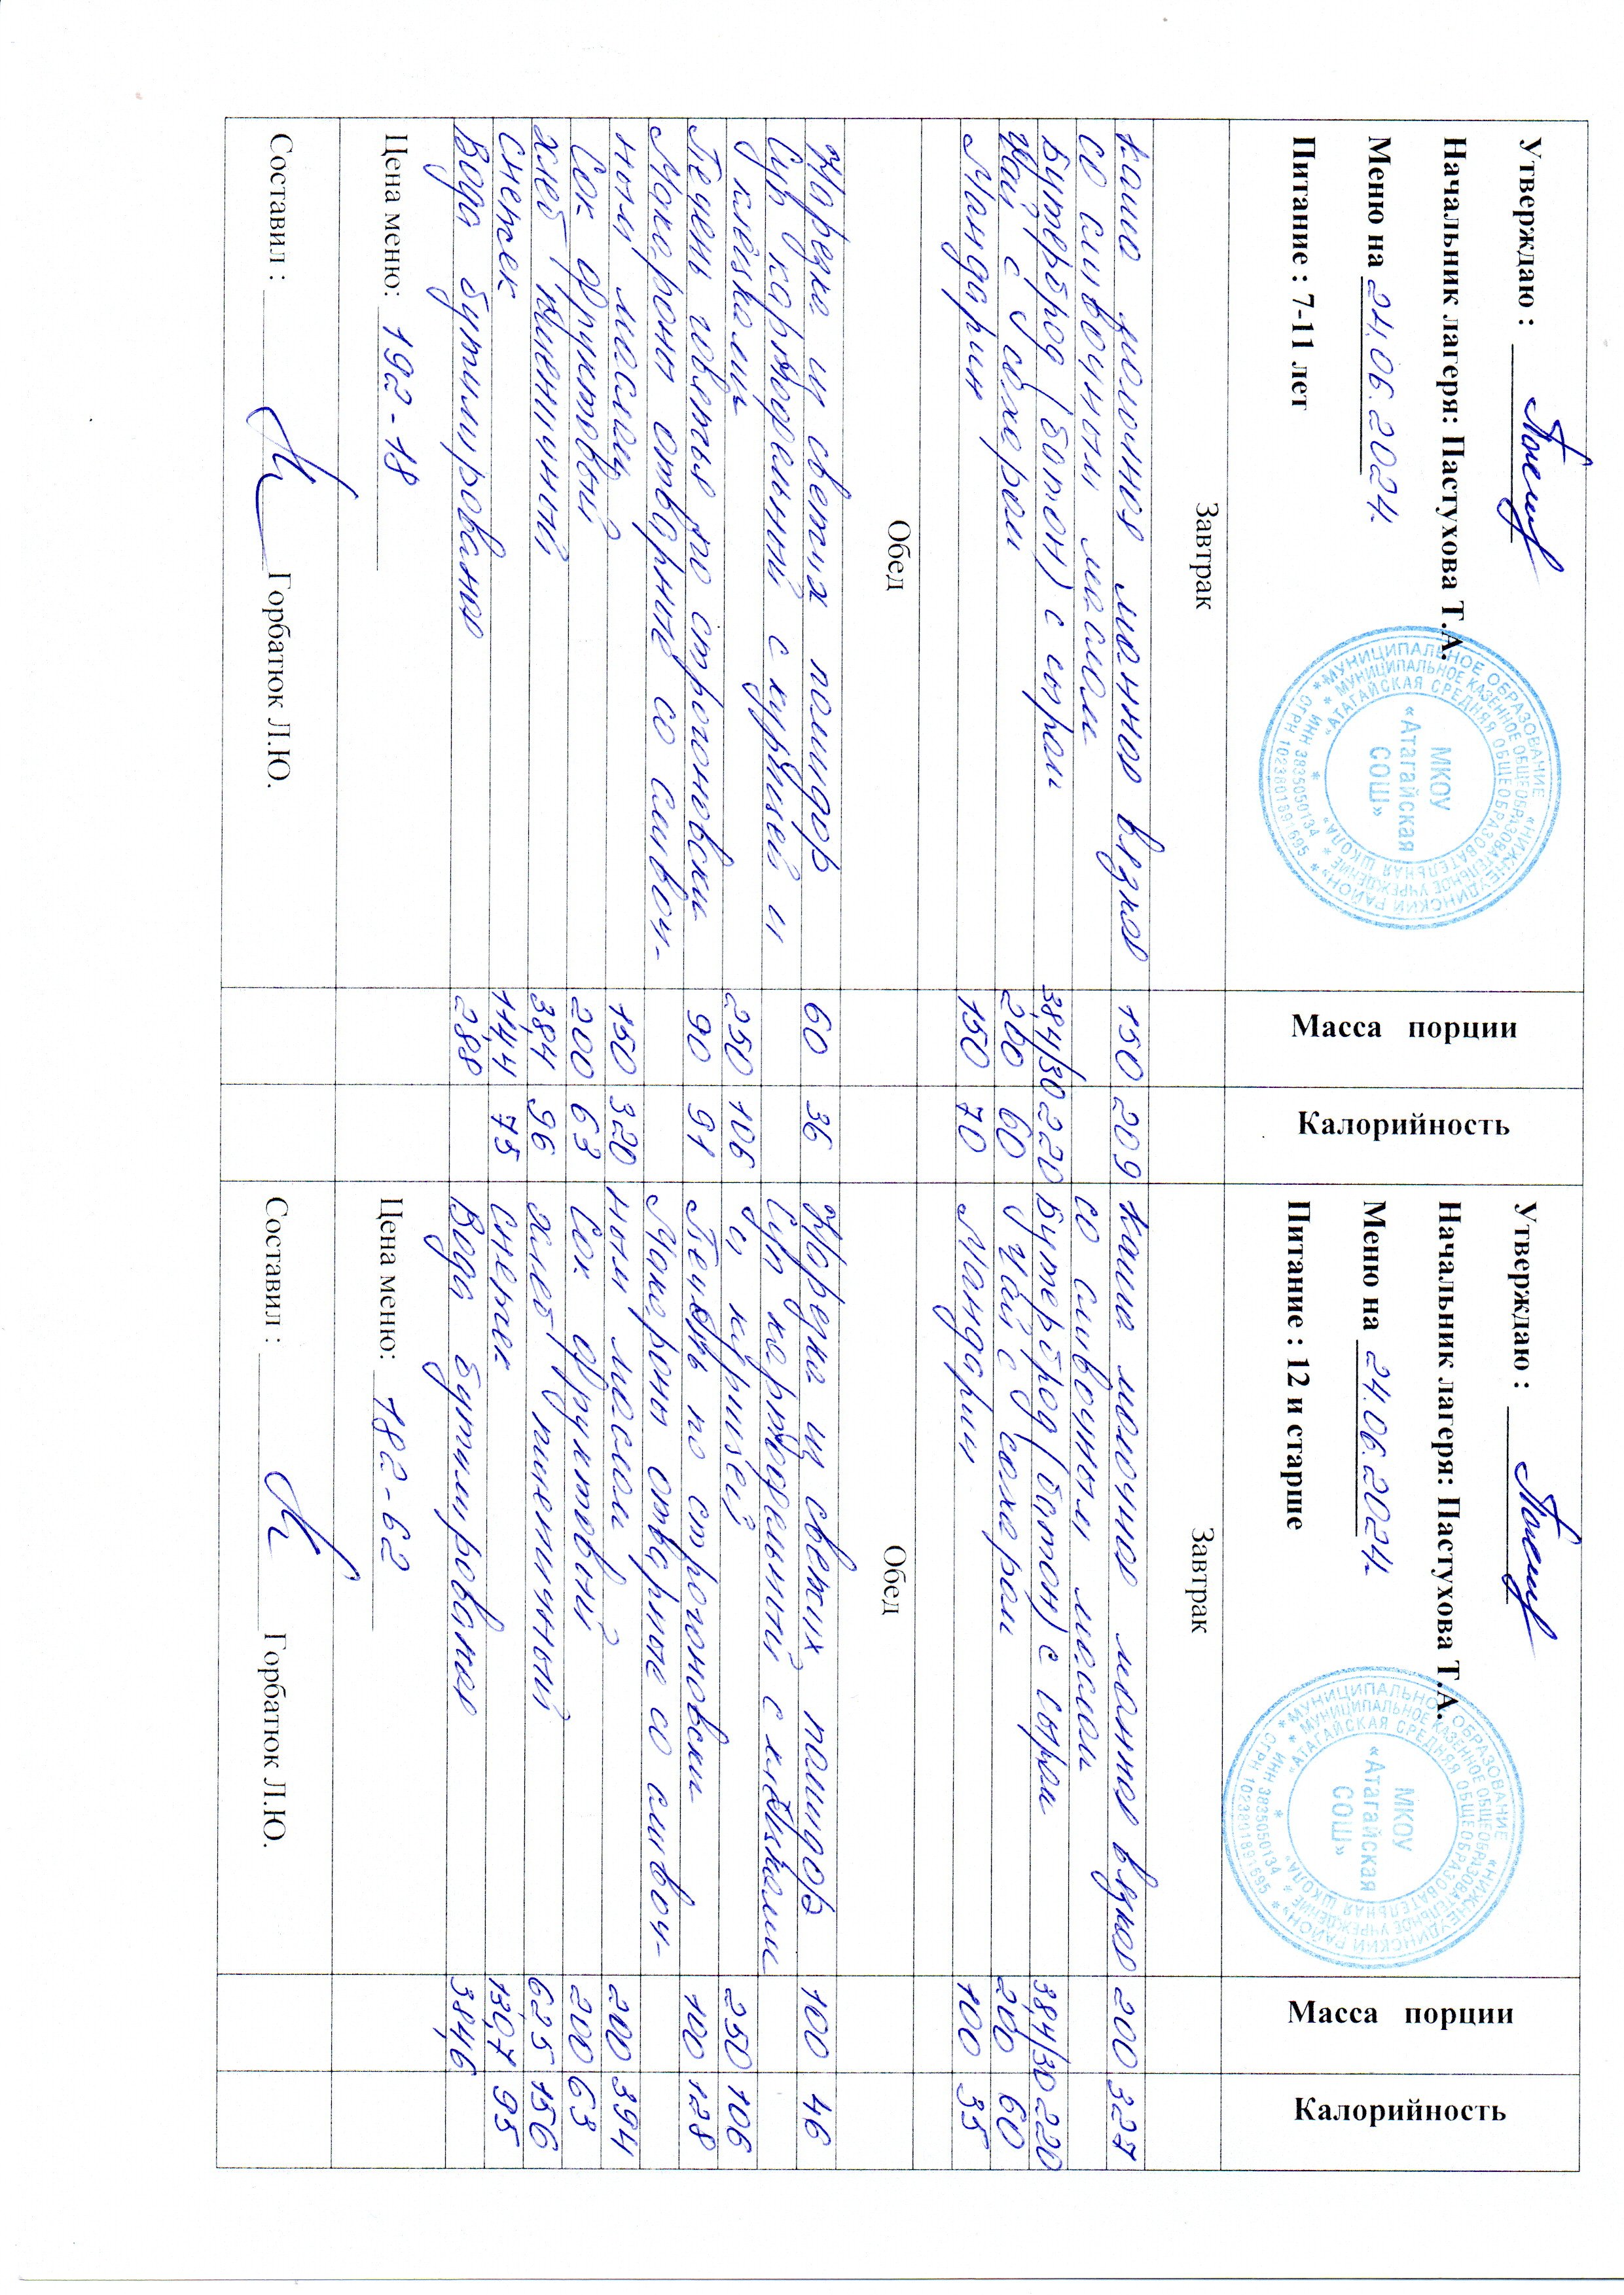 Утверждаю :
Начальник лагеря: Пастухова Т.А.
Меню на 24.06.2024г.
Питание : 7-11 лет
Масса порции
Калорийность
МУНИЦИПАЛЬНОЕ ОБРАЗОВАНИЕ «НИЖНЕУДИНСКИЙ РАЙОН»
МУНИЦИПАЛЬНОЕ КАЗЕННОЕ ОБЩЕОБРАЗОВАТЕЛЬНОЕ УЧРЕЖДЕНИЕ
«АТАГАЙСКАЯ СРЕДНЯЯ ОБЩЕОБРАЗОВАТЕЛЬНАЯ ШКОЛА»
МКОУ
«Атагайская
СОШ»
Завтрак
Каша молочная манная вязкая 150 209
со сливочным маслом
Бутерброд (батон) с сыром 38,4/30 220
Чай с сахаром 200 60
Мандарин 150 70
Обед
Нарезка из свежих помидор 60 36
Суп картофельный с курицей и
клёцками 250 106
Печень говяжья по строгоновски 90 91
Макароны отварные со сливоч-
ным маслом 150 320
Сок фруктовый 200 63
Хлеб пшеничный 38,4 96
Снежек 114,4 75
Вода бутилированая 288
Цена меню: 192-18
Составил : Горбатюк Л.Ю.
Утверждаю :
Начальник лагеря: Пастухова Т.А.
Меню на 24.06.2024г.
Питание : 12 и старше
Масса порции
Калорийность
МУНИЦИПАЛЬНОЕ ОБРАЗОВАНИЕ «НИЖНЕУДИНСКИЙ РАЙОН»
МУНИЦИПАЛЬНОЕ КАЗЕННОЕ ОБЩЕОБРАЗОВАТЕЛЬНОЕ УЧРЕЖДЕНИЕ
«АТАГАЙСКАЯ СРЕДНЯЯ ОБЩЕОБРАЗОВАТЕЛЬНАЯ ШКОЛА»
МКОУ
«Атагайская
СОШ»
Завтрак
Каша молочная манная вязкая 200 327
со сливочным маслом
Бутерброд (батон) с сыром 38,4/30 220
Чай с сахаром 200 60
Мандарин 100 35
Обед
Нарезка из свежих помидор 100 46
Суп картофельный с клёцками
и курицей 250 106
Печень по строгоновски 100 128
Макароны отварные со сливоч-
ным маслом 200 394
Сок фруктовый 200 63
Хлеб пшеничный 62,5 156
Снежек 130,7 95
Вода бутилированая 384,6
Цена меню: 182-62
Составил : Горбатюк Л.Ю.